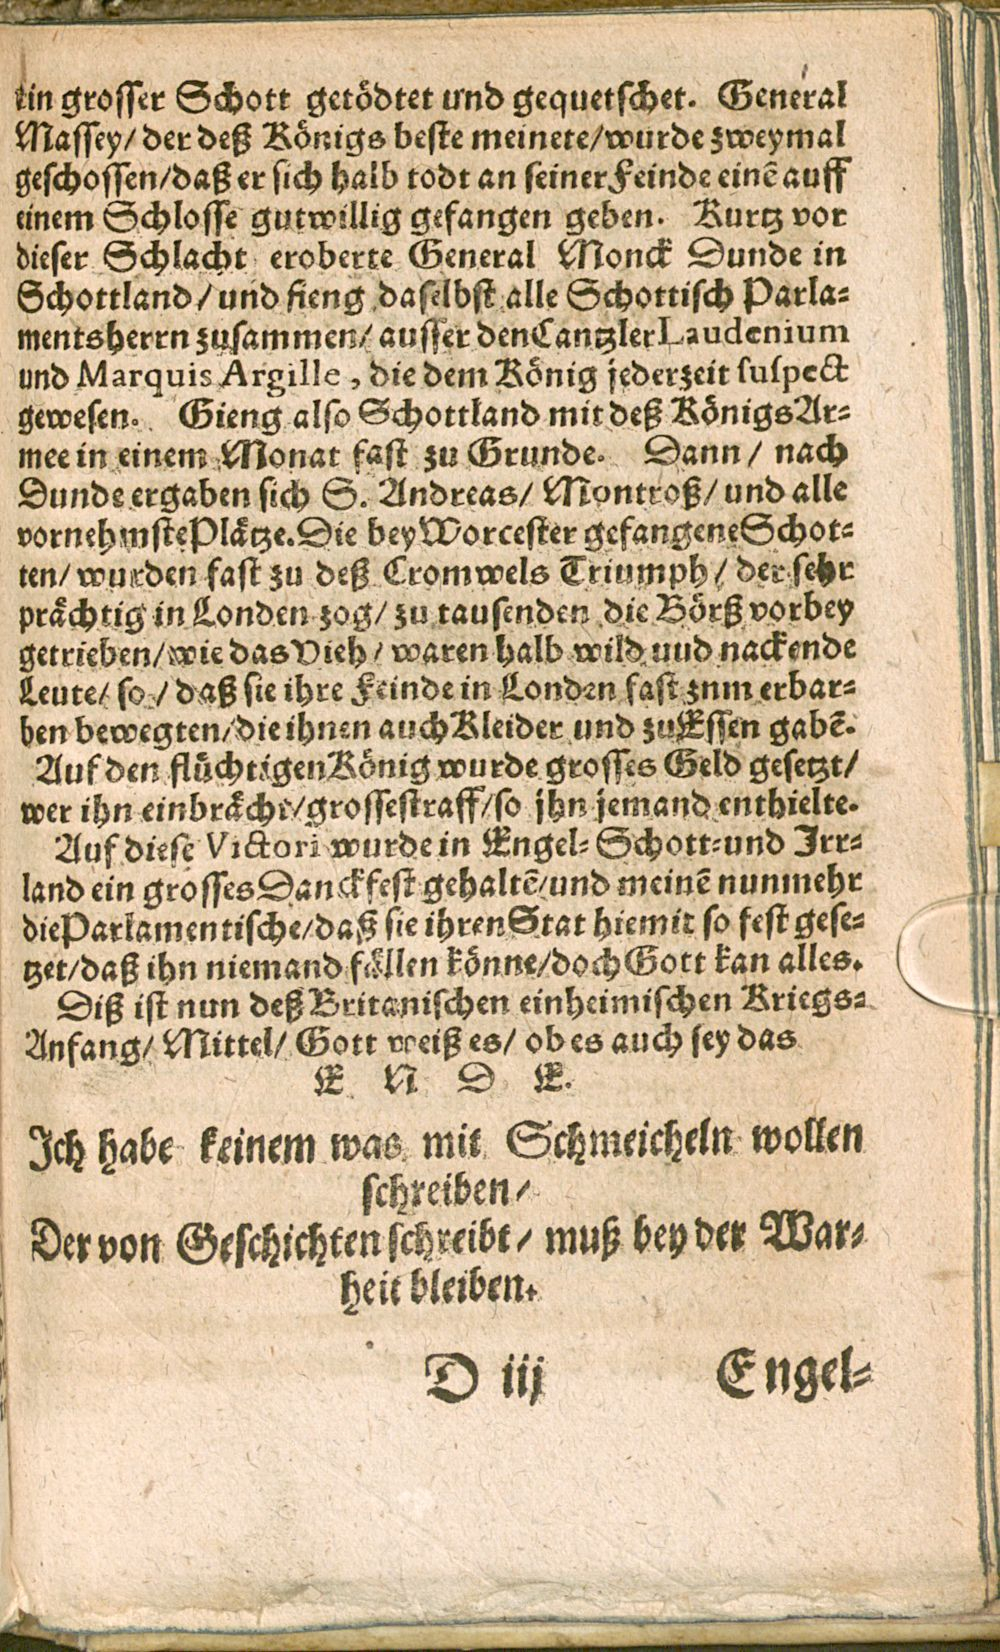 ein grosser Schott getödtet und gequetschet. General
Massey/ der deß Königs beste meinete/wurde zweymal
geschossen/daß er sich halb todt an seiner Feinde einē auff
einem Schlosse gutwillig gefangen geben. Kurtz vor
dieser Schlacht eroberte General Monck Dunde in
Schottland/und fieng daselbst alle Schottisch Parla-
mentsherrn zusammen/ ausser den Cantzler Laudenium
und Marquis Argille, die dem König jederzeit suspect
gewesen. Gieng also Schottland mit deß Königs Ar-
mee in einem Monat fast zu Grunde. Dann/ nach
Dunde ergaben sich S. Andreas/ Montroß/ und alle
vornehmste Plätze. Die bey Worcester gefangene Schot-
ten/ wurden fast zu deß Cromwels Triumph/ der sehr
prächtig in Londen zog/ zu tausenden die Börß vorbey
getrieben/wie das Vieh/ waren halb wild uud nackende
Leute/ so/ daß sie ihre Feinde in Londen fast znm erbar-
ben bewegten/die ihnen auch Kleider und zu Essen gabē.
Auf den flüchtigen König wurde grosses Geld gesetzt/
wer ihn einbrächt/grosse straff/so jhn jemand enthielte.
Auf diese Victori wurde in Engel- Schott-und Irr-
land ein grosses Danckfest gehaltē/und meinē nunmehr
die Parlamentische/daß sie ihren Stat hiemit so fest gese-
tzet/daß ihn niemand fällen könne/doch Gott kan alles.
Diß ist nun deß Britanischen einheimischen Kriegs-
Anfang/ Mittel/ Gott weiß es/ ob es auch sey das
E N D E.
Ich habe keinem was mit Schmeicheln wollen
schreiben/
Der von Geschichten schreibt/ muß bey der War-
heit bleiben.
D iij Engel-